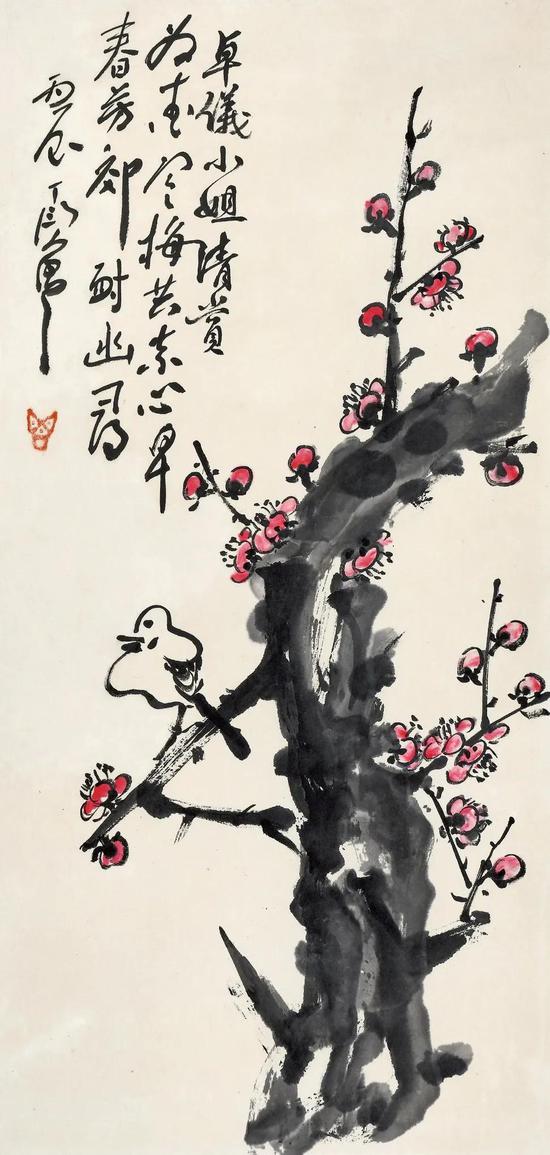 卓儀小姐清賞
為愛寒梅共素心早
春芳郊耐幽尋
丁衍庸